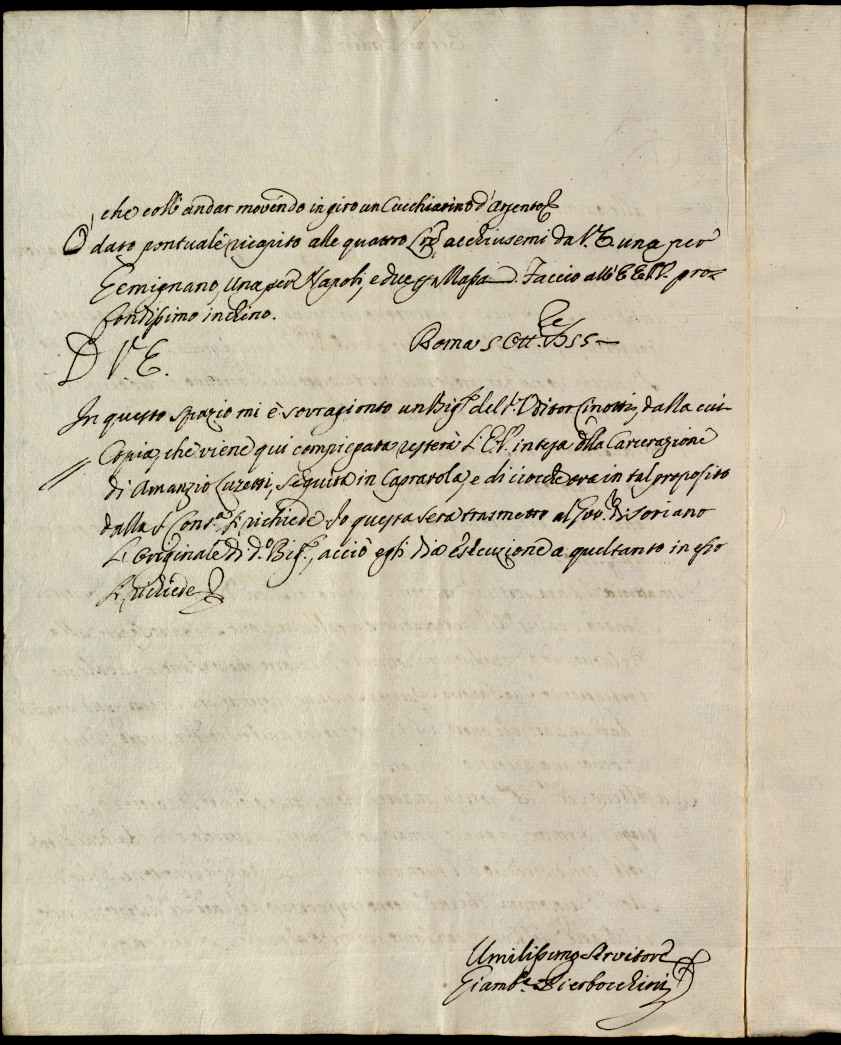 che coll'andar movendo in giro un Cucchiarino d'argento
Ò dato pontuale ricapito alle quattro Lre acchiusemi da V.E. una per
Gemignano, una per Napoli, e due per Massa. Faccio all'EE.VV. pro=
fondissimo inchino.
D V.E. Roma 5 Ott.re 1755
In questo spazio mi è sovragionto un Bigl.to del S.r Uditor Cinotti, dalla cui
Copia, che viene qui compiegata resterà L'E.V. intesa della Carcerazione
di Amanzio Luzetti, seguita in Caprarola, e di ciocche ora in tal proposito
dalla S. Cons.ta si richiede. Io questa sera trasmetto al Gov.re di Soriano
L'Originale di d.o Bigl.to, acciò egli dia esecuzione a quel tanto in esso
si richiede
Umilissimo Servitore
Giamb.a Pierbocchini